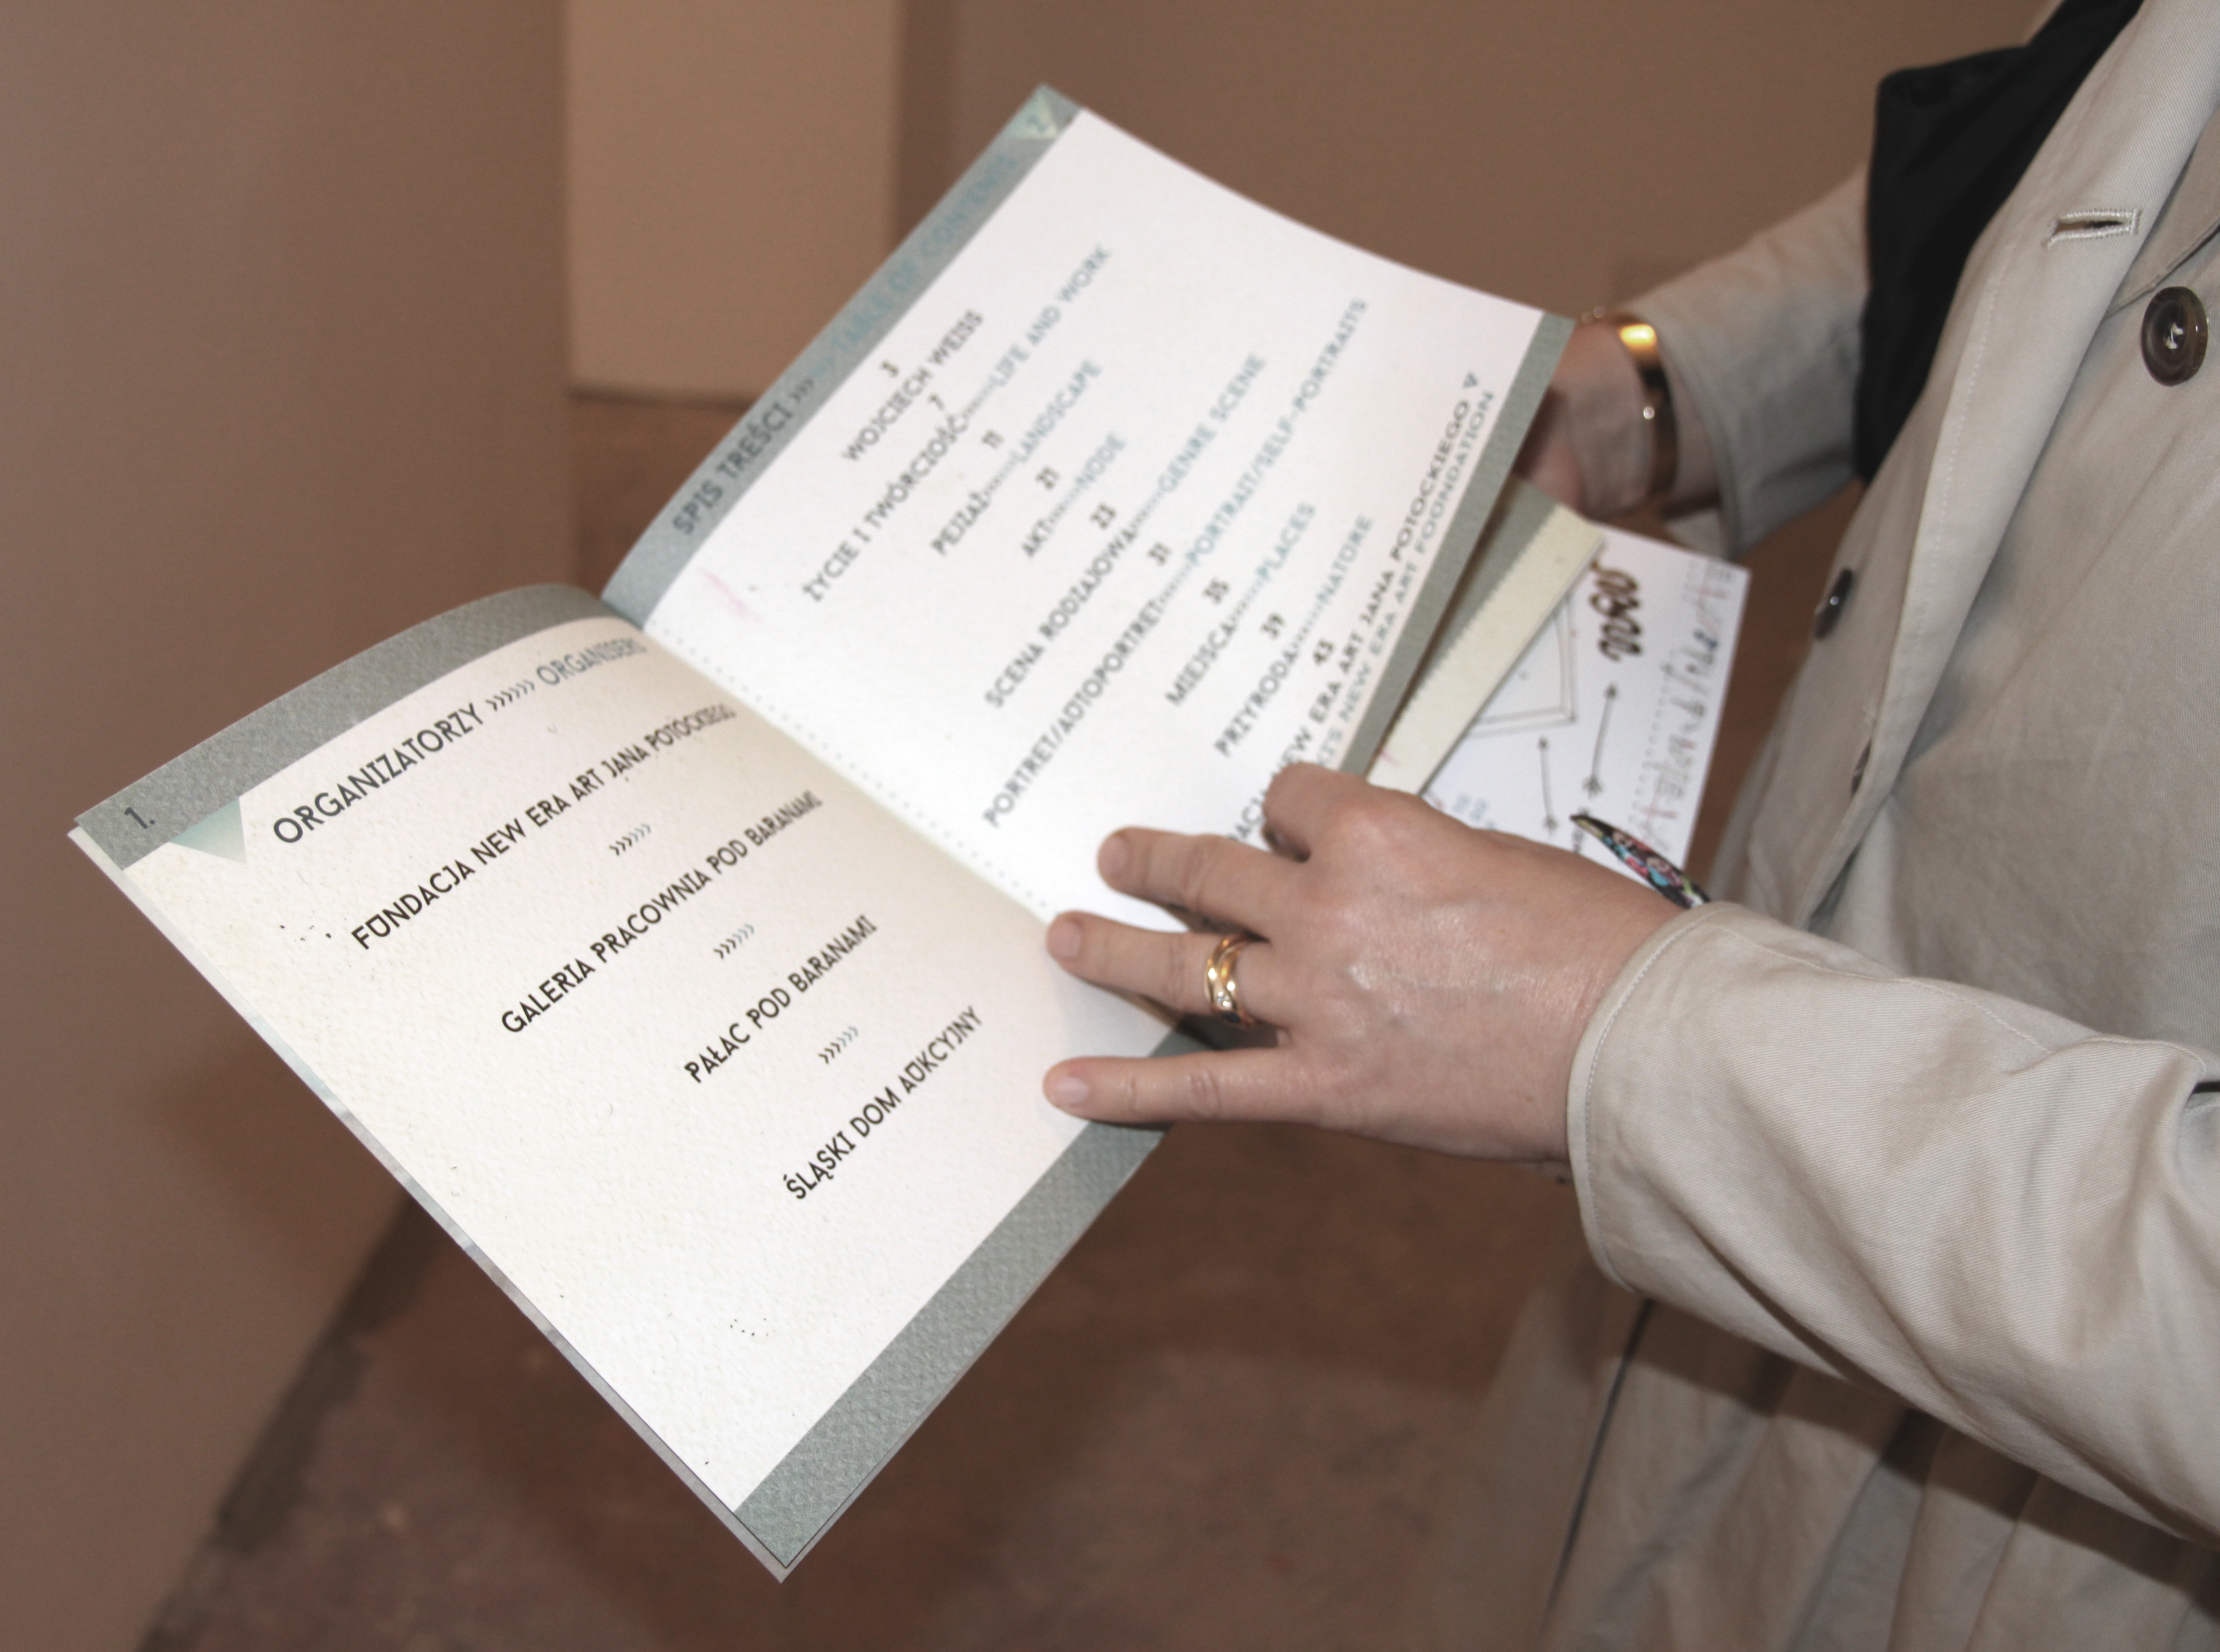 1.
ORGANIZATORZY »»» ORGANISERS
FUNDACJA NEW ERA ART JANA POTOCKIEGO
»»»
GALERIA PRACOWNIA POD BARANAMI
»»»
PAŁAC POD BARANAMI
»»»
ŚLĄSKI DOM AUKCYJNY
2
SPIS TREŚCI »»» TABLE OF CONTENTS
3
WOJCIECH WEISS
7
ŻYCIE I TWÓRCZOŚĆ»»»LIFE AND WORK
11
PEJZAŻ»»»LANDSCAPE
21
AKT»»»NUDE
23
SCENA RODZAJOWA»»»GENRE SCENE
31
PORTRET/AUTOPORTRET»»»PORTRAIT/SELF-PORTRAITS
35
MIEJSCA»»»PLACES
39
PRZYRODA»»»NATURE
43
NEW ERA ART JANA POTOCKIEGO V
NEW ERA ART FOUNDATION